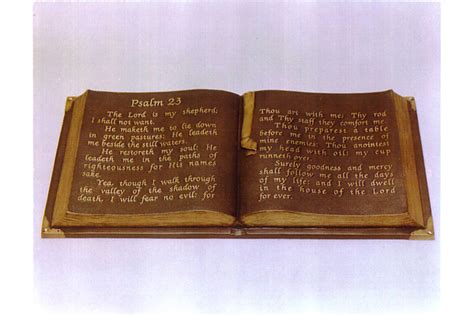 Psalm 23
The Lord is my shepherd;
I shall not want.
He maketh me to lie down
in green pastures: He leadeth
me beside the still waters.
He restoreth my soul: He
leadeth me in the paths of
righteousness for His names
sake.
Yea, though I walk through
the valley of the shadow of
death, I will fear no evil: for
Thou art with me; Thy rod
and Thy staff they comfort me.
Thou preparest a table
before me in the presence of
mine enemies: Thou anointest
my head with oil; my cup
runneth over.
Surely goodness and mercy
shall follow me all the days
of my life: and I will dwell
in the house of the Lord
for ever.